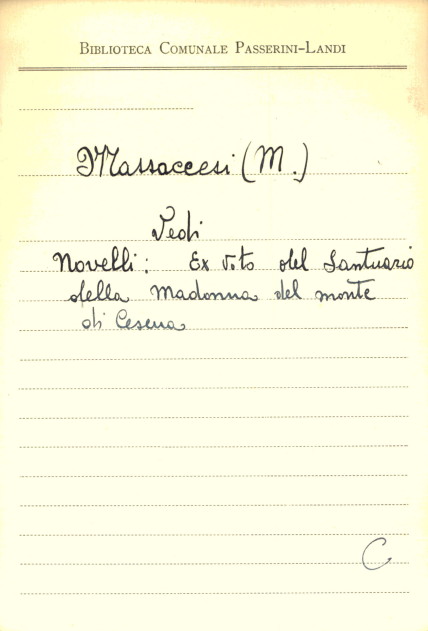 BIBLIOTECA COMUNALE PASSERINI-LANDI
Massaccesi (M.)
Vedi
Novelli: Ex voto del Santuario
della Madonna del monte
di Cesena
C